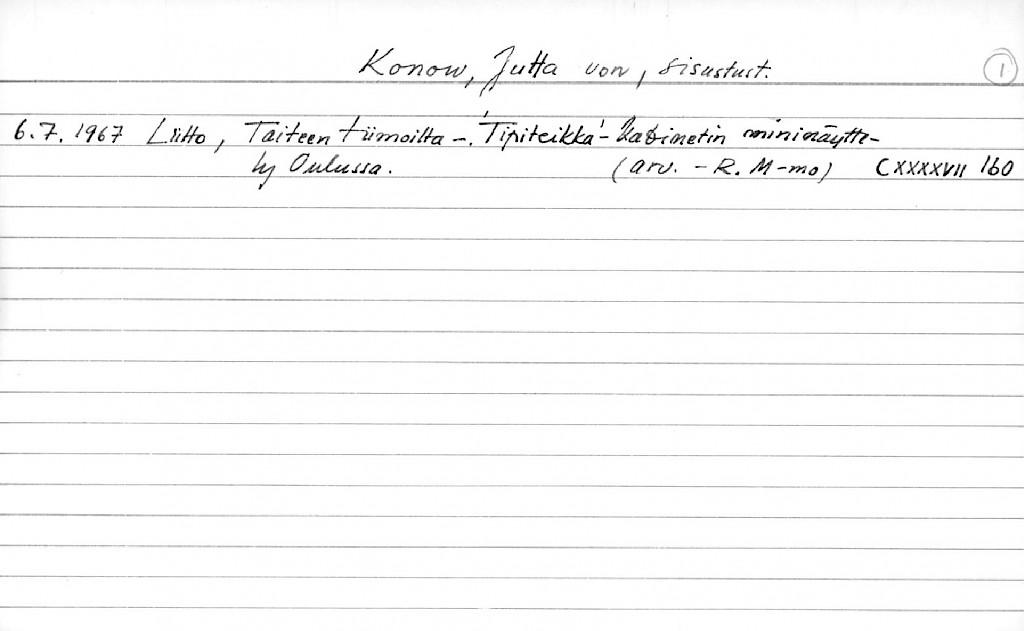 Konow, Jutta von, sisustust. 1
6.7.1967 Liitto, Taiteen tiimoilta -. 'Tipiteikka'- kabinetin mininäytte-
ly Oulussa. (arv. - R. M-mo) CXXXXVII 160